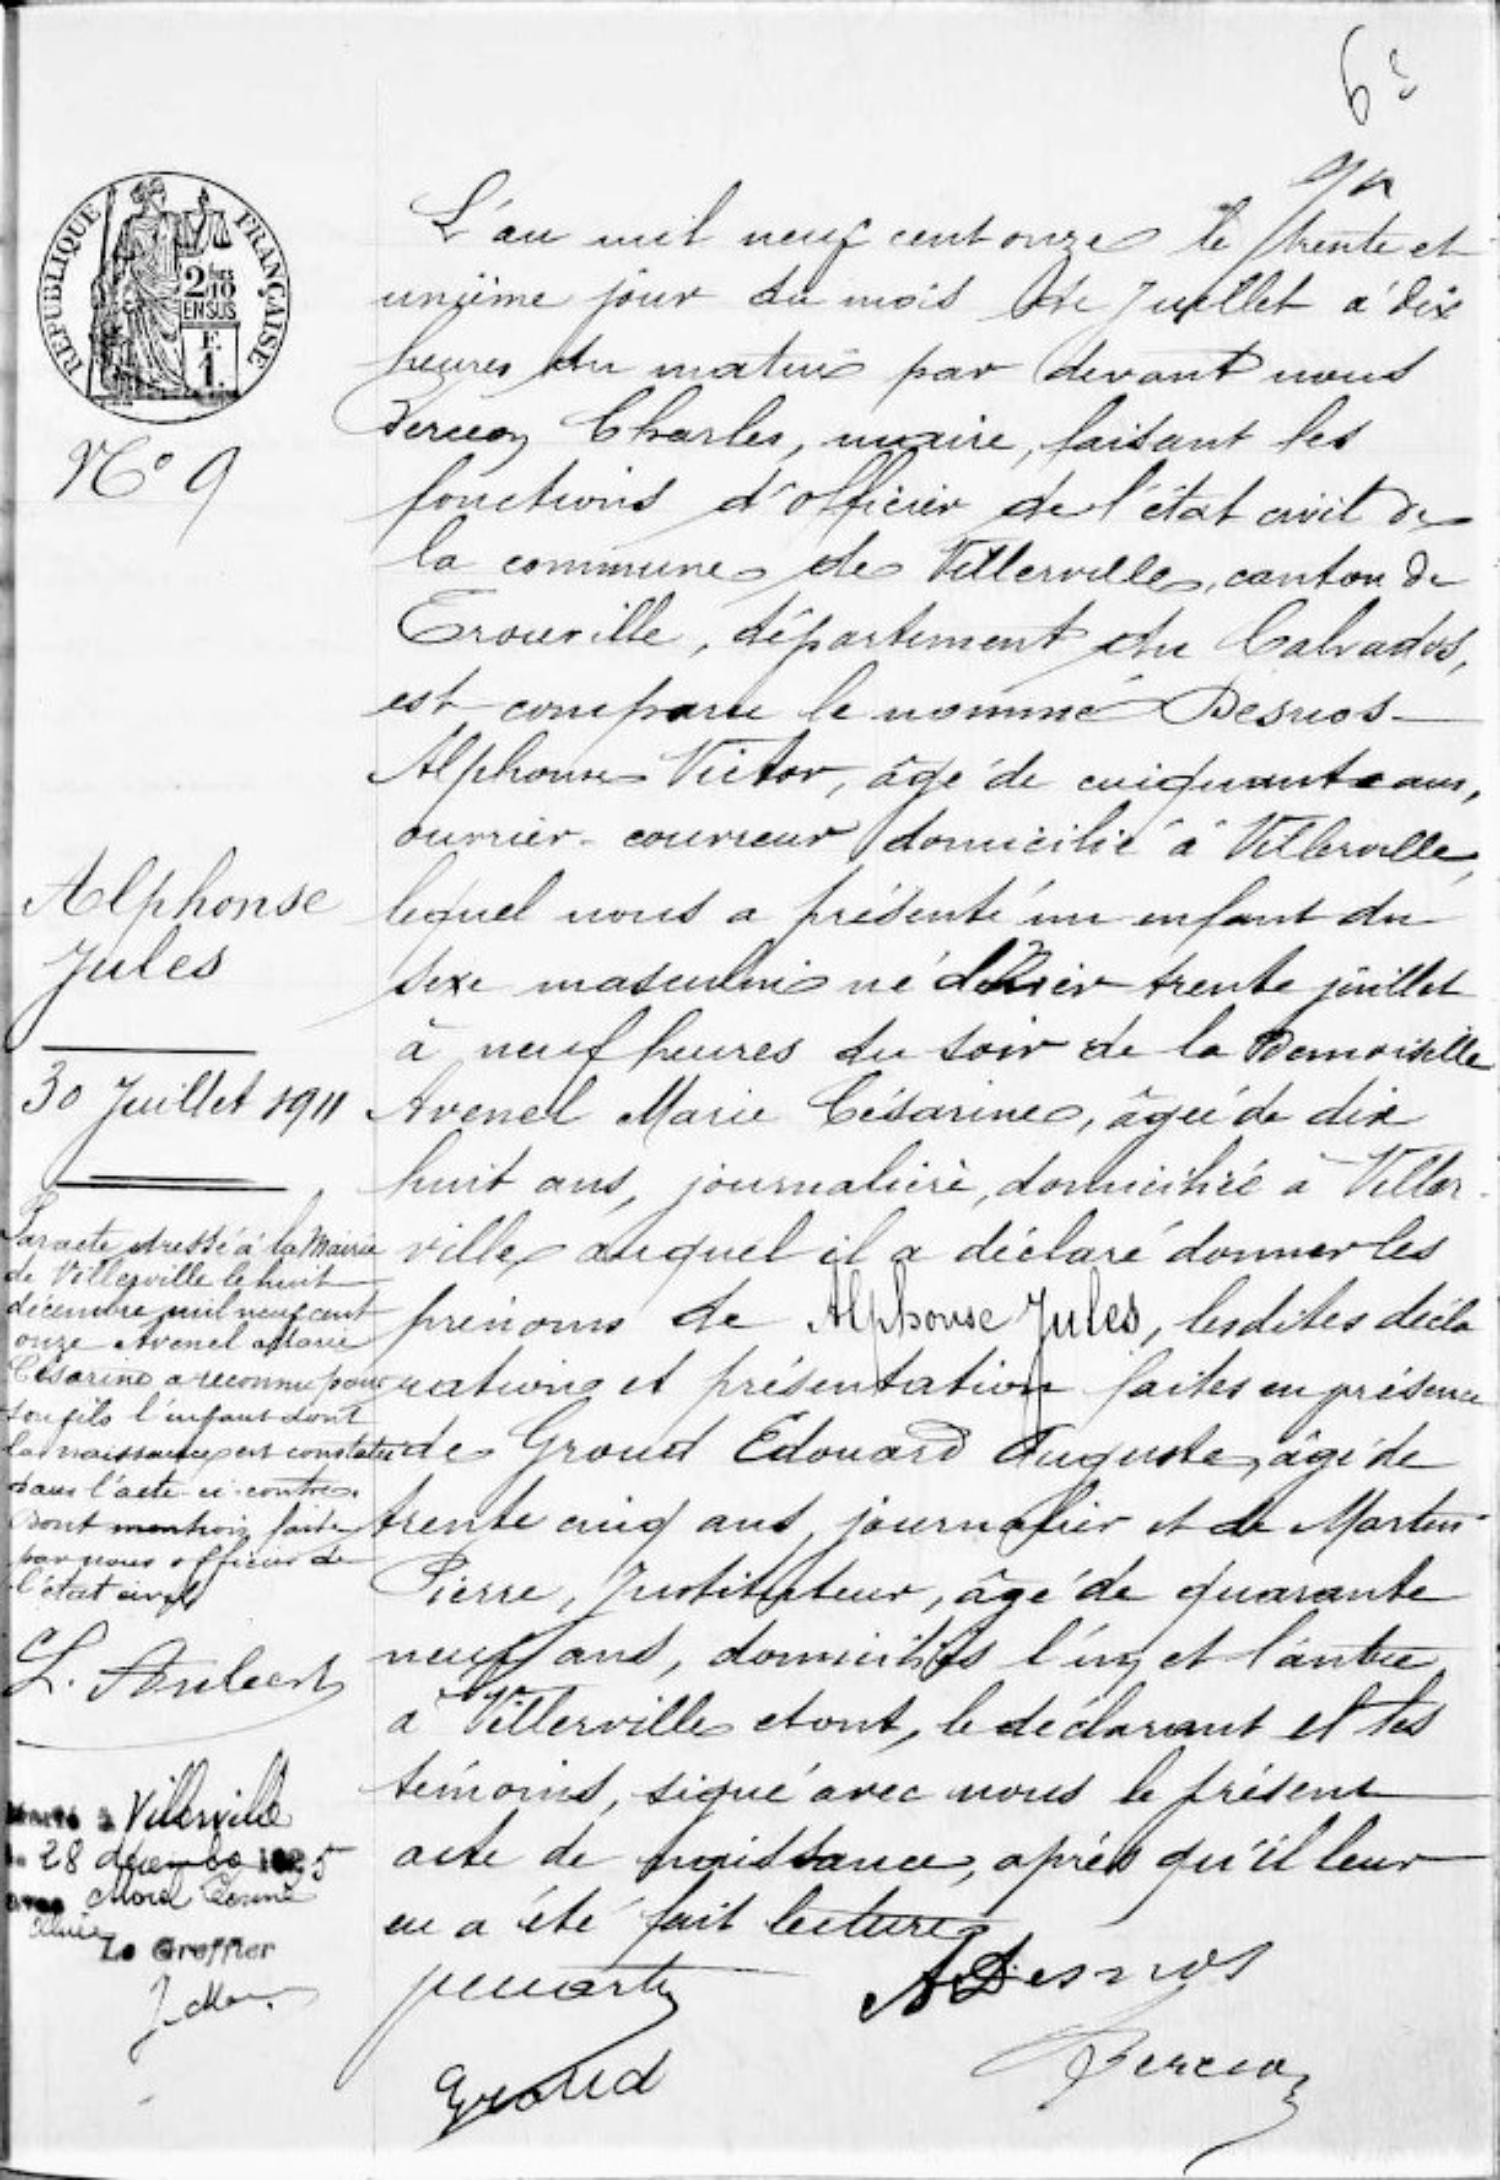 6
L'an mil neuf cent onze le trente et
unième jour du mois de Juillet à dix
heures du matin par devant nous
Charles, maire, faisant les
fonctions d'officier de l'état civil de
la commune de Villerville, canton de
Trouville, département du Calvados,
est comparu le nommé Desnos
Alphonse Victor, âgé de cinquante ans,
ouvrier-couvreur domicilié à Villerville,
lequel nous a présenté un enfant du
sexe masculin né trente juillet
à neuf heures du soir de la Demoiselle
Avenel Marie Césarine, âgée de dix
huit ans, journalière, domiciliée à Viller-
ville auquel il a déclaré donner les
prénoms de Alphonse Jules, lesdites décla
rations et présentation faites en présence
de Groud Edouard Auguste, âgé de
trente cinq ans, journalier et de Martin
Pierre, Instituteur, âgé de quarante
neuf ans, domiciliés l'un et l'autre
à Villerville et ont, le déclarant et les
témoins, signé avec nous le présent
acte de naissance, après qu'il leur
en a été fait lecture
ADesnos
Groud
REPUBLIQUE FRANÇAISE
2/10
EN SUS
F.
1.
N° 9
Alphonse
Jules
30 Juillet 1911
Par acte dressé à la Mairie
de Villerville le huit
décembre mil neuf cent
onze Avenel Marie
Césarine a reconnu pour
son fils l'enfant dont
la naissance est constatée
dans l'acte ci-contre.
Dont mention faite
par nous officier de
l'état civil
L. Aubert
Marié à Villerville
le 28 décembre 1925
avec Morel
Le Greffier